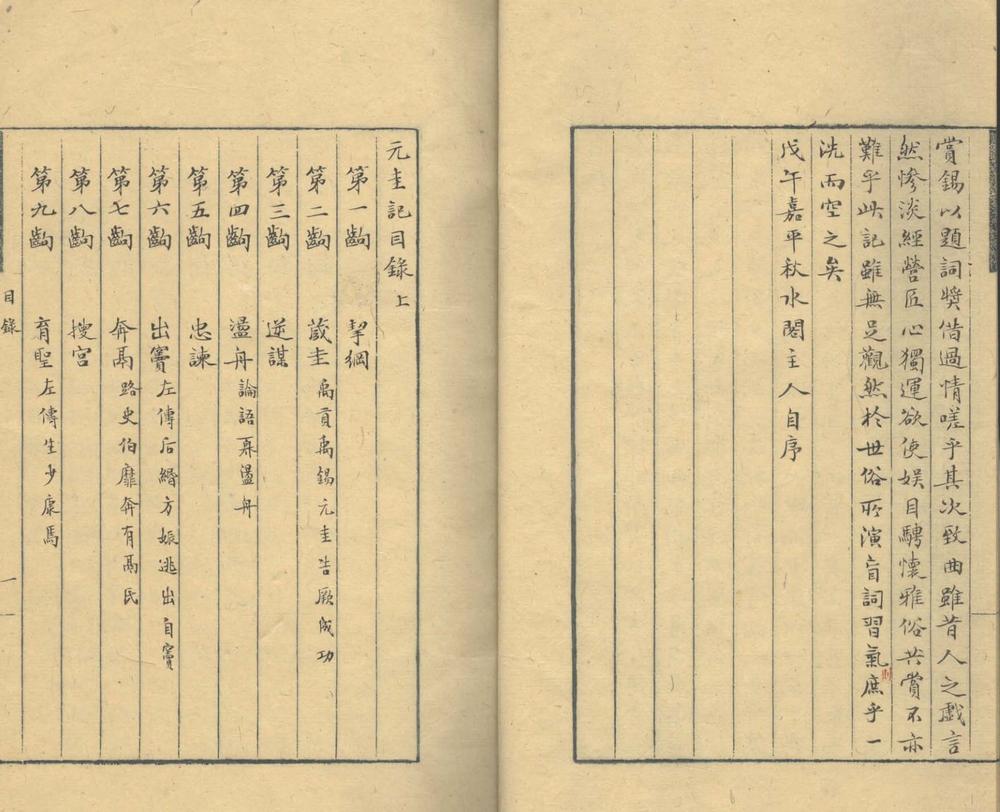 賞錫以題詞獎借過情嗟乎其次致曲雖昔人之戲言
然慘淡經營匠心獨運欲使娛目騁懷雅俗共賞不亦
難乎此記雖無足觀然於世俗所演盲詞習氣庶乎一
則
洗而空之矣
戊午嘉平秋水閣主人自序
元圭記目錄上
第一齣 挈綱
第二齣 蕆圭 禹貢禹錫元圭告厥成功
第三齣 逆謀
第四齣 盪舟 論語奡盪舟
第五齣 忠諫
第六齣 出竇 左傳后緡方娠逃出自竇
第七齣 奔鬲 路史伯靡奔有鬲氏
第八齣 搜宮
第九齣 育聖 左傳生少康焉
目錄
一